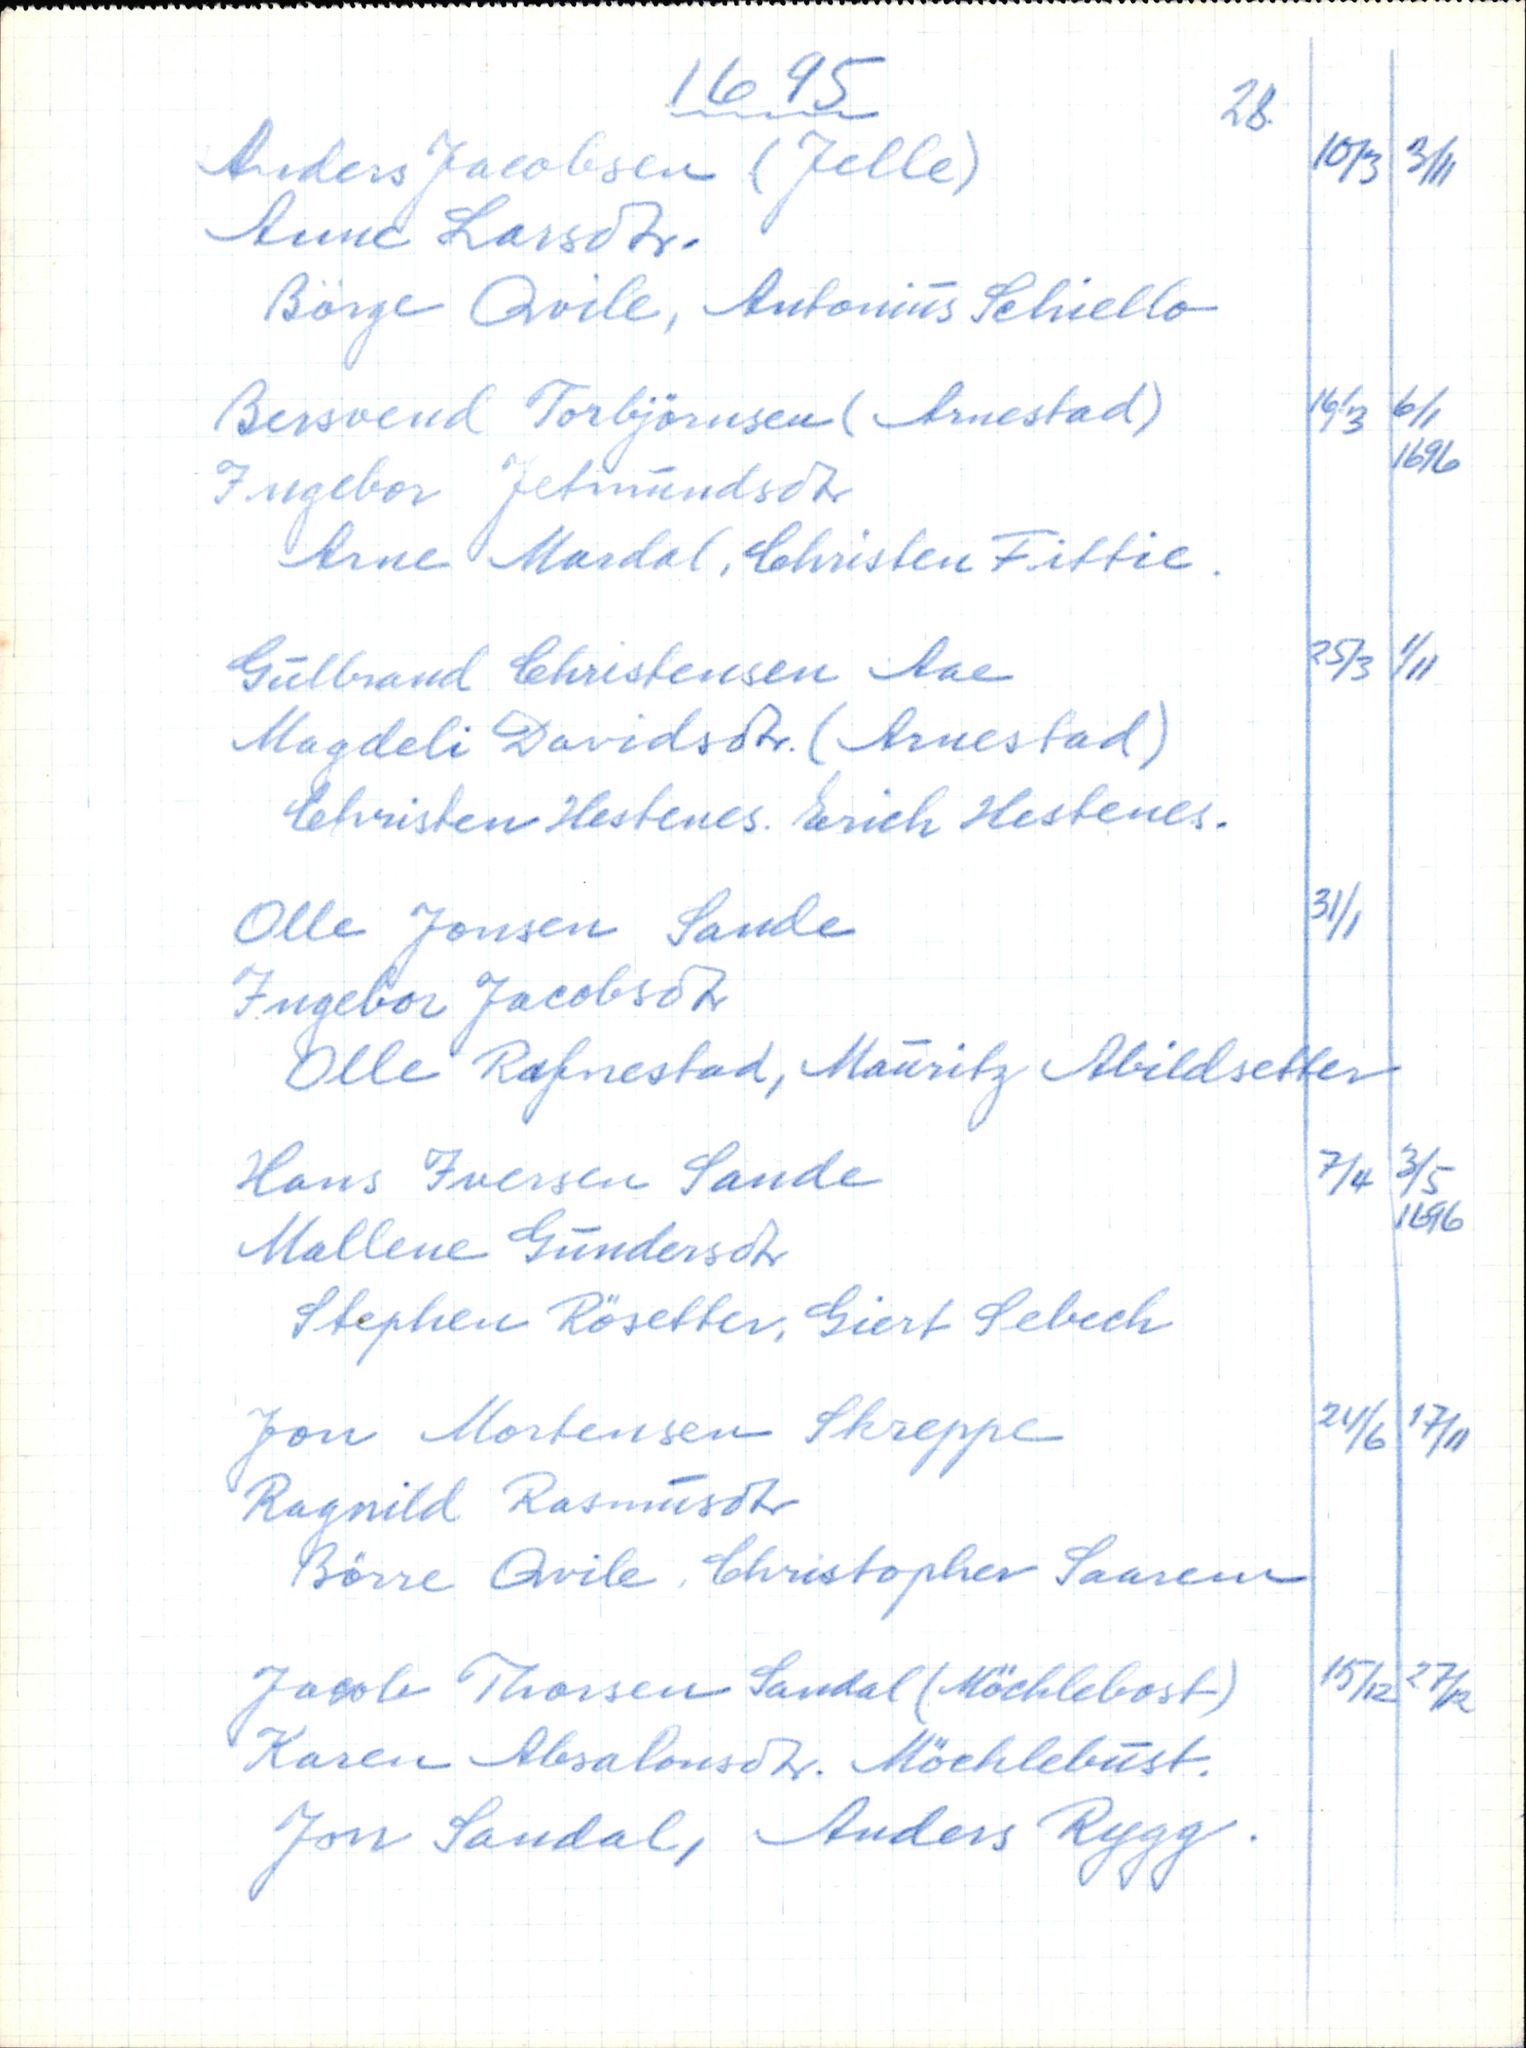 1695
28.
Anders Jacobsen (Jelle) 10/3 3/11
Anne Larsdtr.
Börge Qvile, Antonius Schiello
Bersvend Torbjörnsen (Arnestad) 16/3 6/1
Ingebor Jetmundsdtr 1696
Arne Mardal, Christen Fittie.
Gulbrand Christensen Aae 25/3 1/11
Magdeli Davidsdtr. (Arnestad)
Christen Hestenes. Erich Hestenes.
Olle Jonsen Sande 31/1
Ingebor Jacobsdtr
Olle Rafnestad, Mauritz Abildsetter
Hans Iversen Sande 7/4 3/5
1696
Mallene Gundersdtr
Stephen Rösetter, Giert Sebech
Jon Mortensen Skreppe 24/6 17/11
Ragnild Rasmusdtr
Börre Qvile, Christopher Saarem
Jacob Thorsen Sandal (Möchlebost) 15/12 27/12
Karen Absalonsdtr. Möchlebust.
Jon Sandal, Anders Rygg.